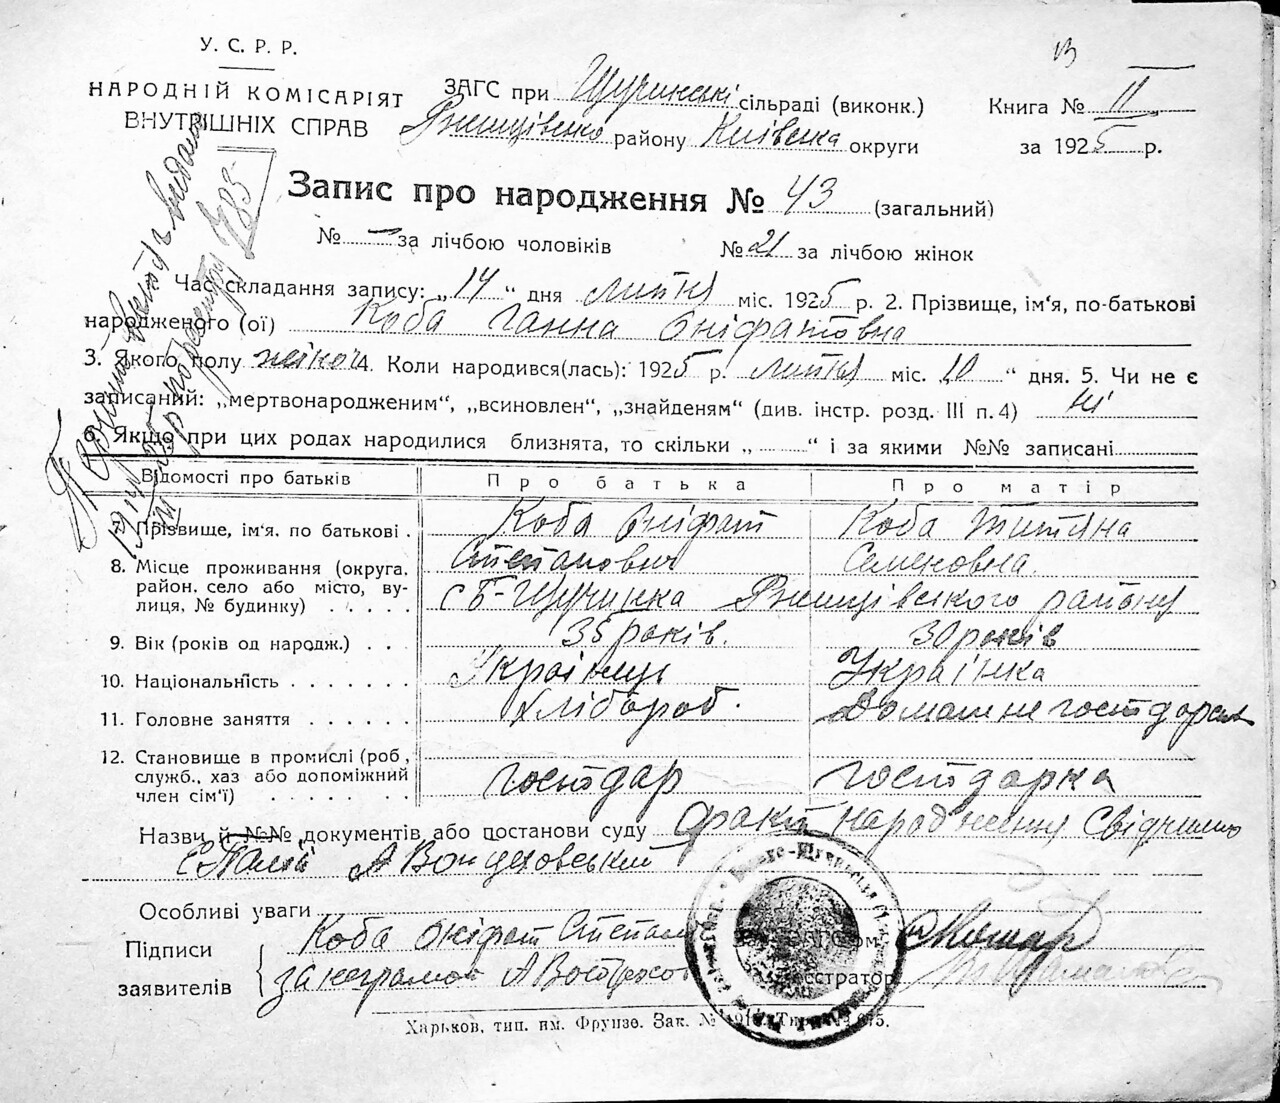 У. С. Р. Р.
НАРОДНІЙ КОМІСАРІЯТ
ВНУТРІШНІХ СПРАВ
13
ЗАГС при Щучинські сільраді (виконк.)
Книга № 11
Ржищівсько району Київська округи
за 1925 р.
Запис про народження № 43 (загальний)
№ — за лічбою чоловіків № 21 за лічбою жінок
Час складання запису: „14" дня липня міс. 1925 р. 2. Прізвище, ім'я, по-батькові
народженого (ої) Коба Ганна Оніфатовна
3. Якого полу жіноч 4. Коли народився(лась): 1925 р. липня міс. „10" дня. 5. Чи не є
записаний: „мертвонародженим", „всиновлен", „знайденям" (див. інстр. розд. III п. 4) Ні
6. Якщо при цих родах народилися близнята, то скільки „ " і за якими №№ записані
Відомості про батьків Про батька Про матір
7. Прізвище, ім'я. по батькові . Коба Оніфат Степанович Коба Титяна Семеновна.
8. Місце проживання (округа. район. село або місто, ву-
лиця, № будинку) . . . . . с Б-Щучинка Ржищівського району
9. Вік (років од народж.) . . . 35 років. 30 років
10. Національність . . . . . . . Українець Українка
11. Головне заняття . . . . . . Хлібороб. Домашне господарст
12. Становище в промислі (роб,
служб., хаз або допоміжний
член сім'ї) . . . . . . . господар господарка
Назви й №№ документів або постанови суду факт народження Свідчили
А Войцеховський
Особливі уваги
Підписи
заявителів
Коба Оніфат Степан
за неграмот А
Зав. ЗАГС'ом
Реєстратор
Харьков, тип. им. Фрунзе. Зак. №